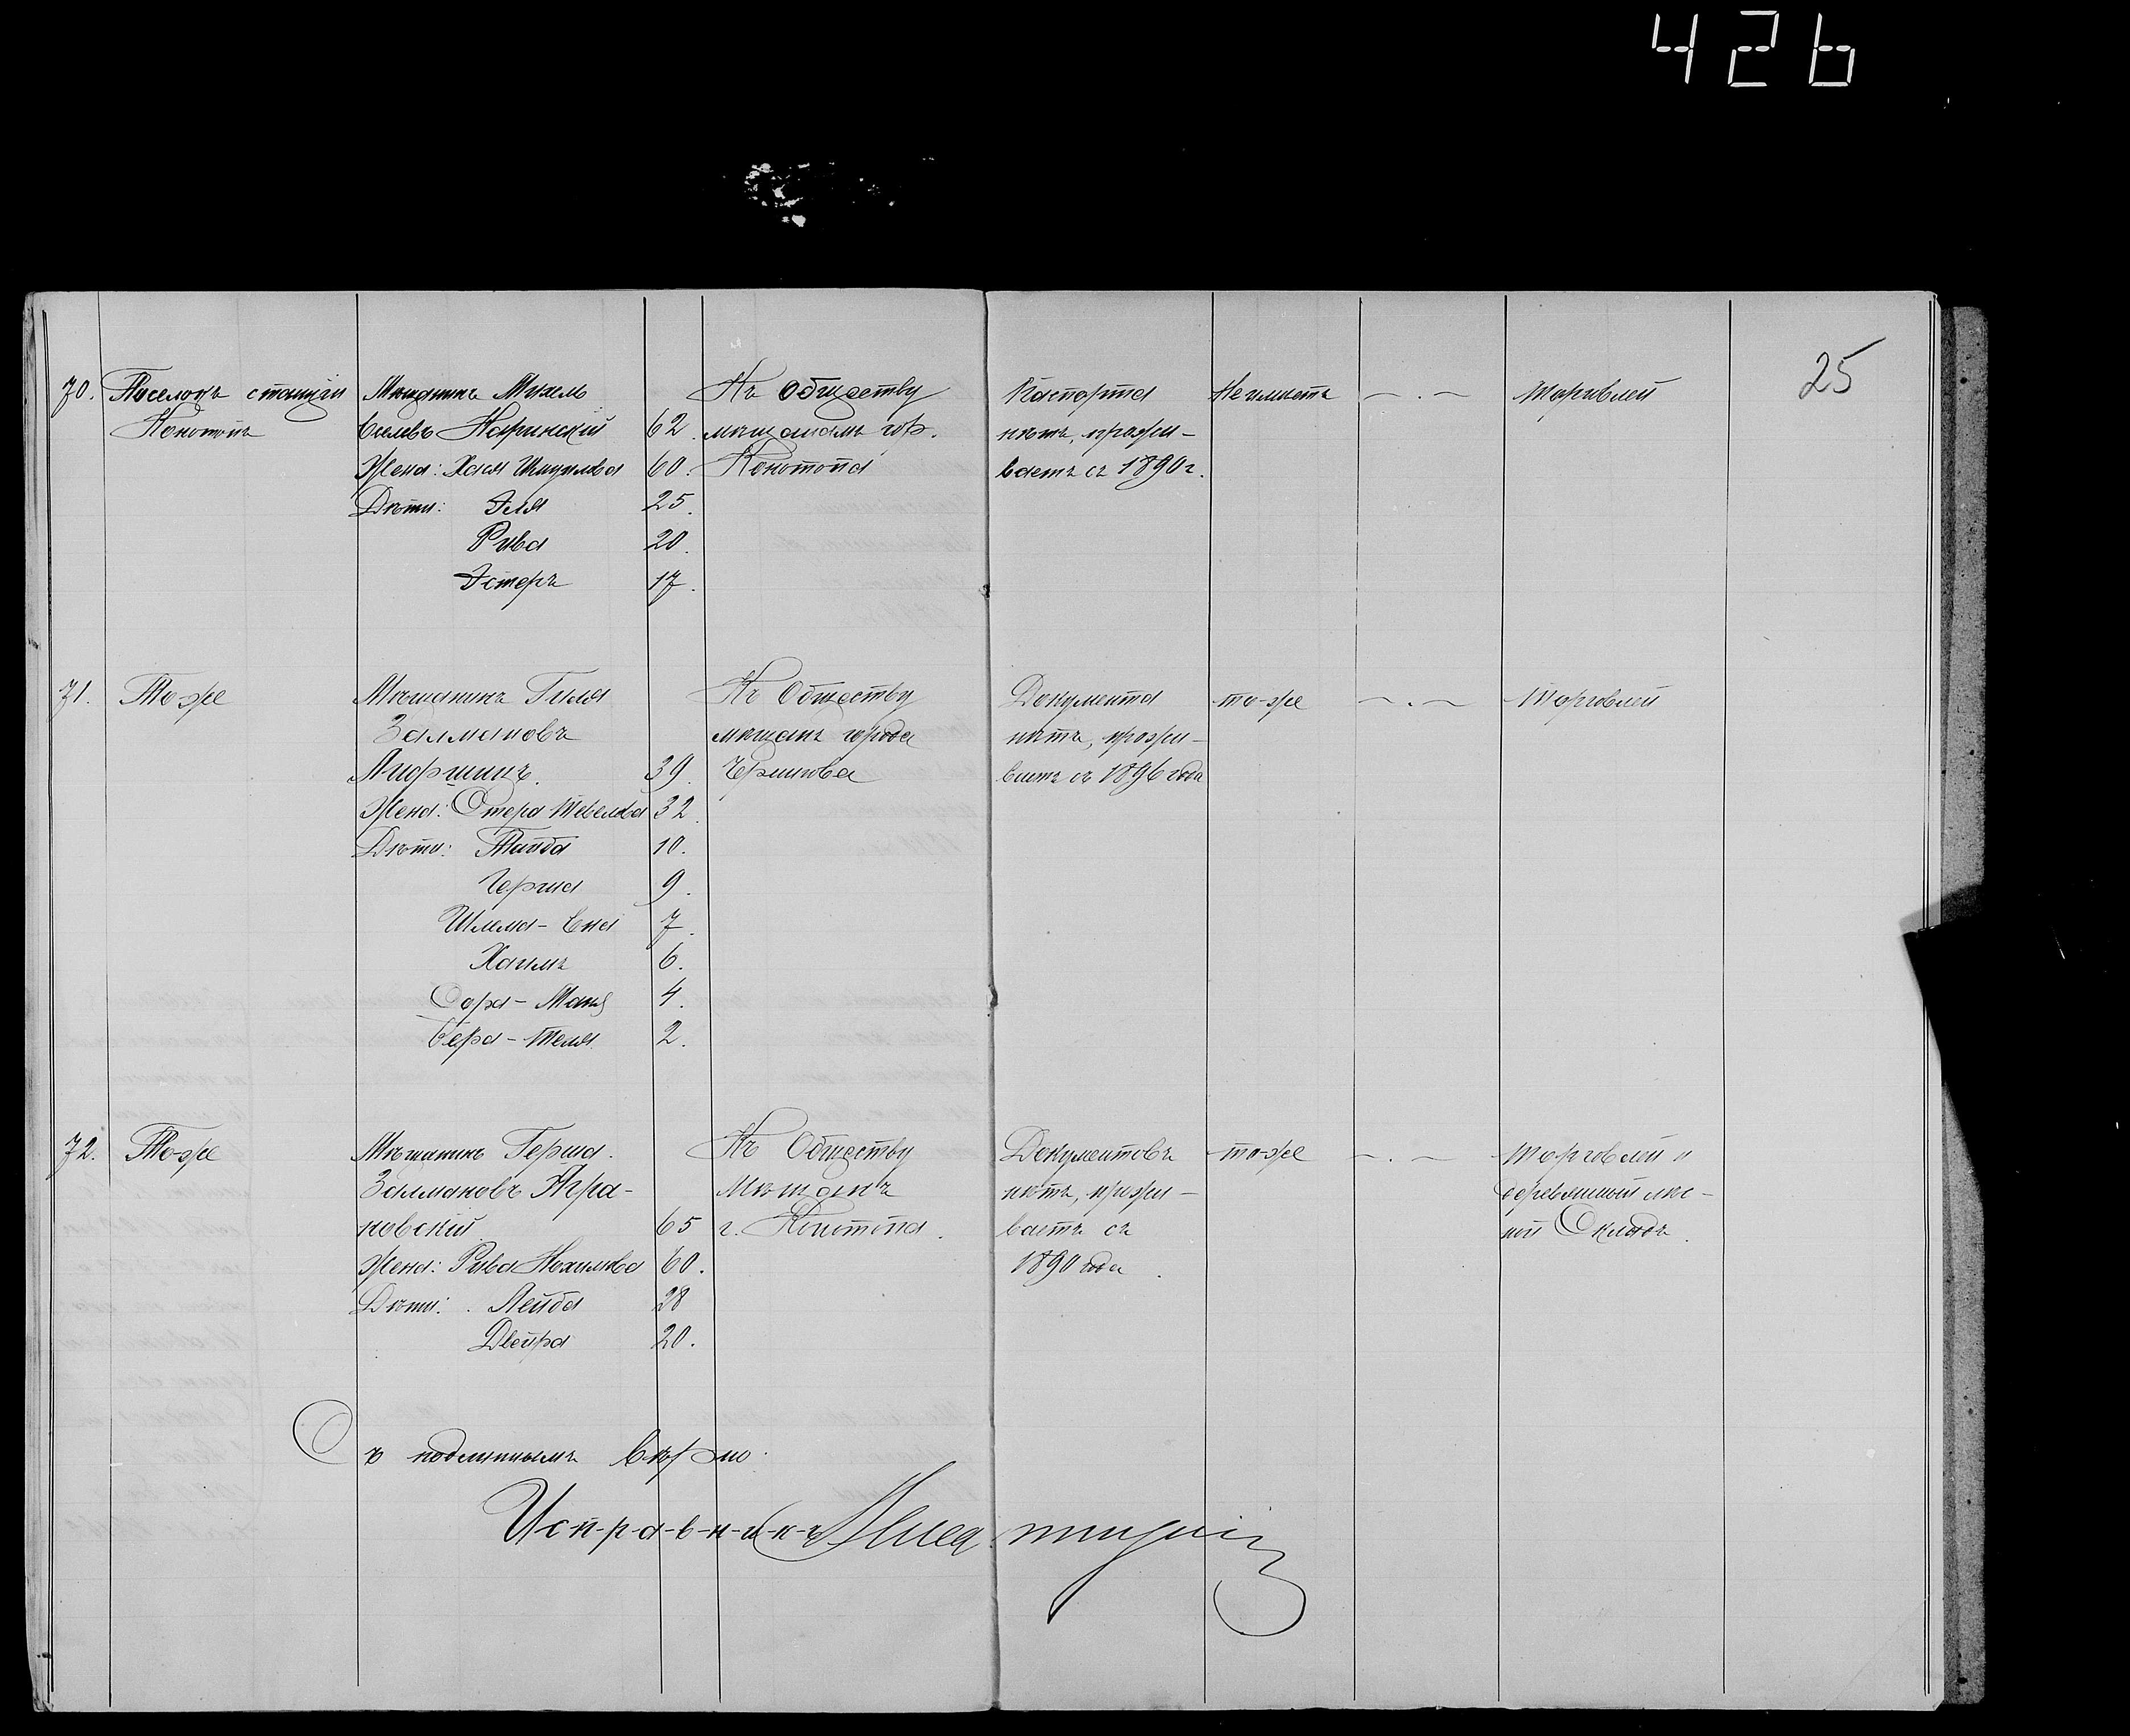 426
25
70. Поселокъ станціи
Конотопъ
Мѣщанинъ Михель
Іоселевъ Наринскій 62.
Жена: Хася Шмуилова 60.
Дѣти: Эля 25.
Рива 20.
Эстеръ 17.
Къ Обществу
мѣщанамъ гор.
Конотопа
Паспорта
нѣтъ, прожи-
ваетъ съ 1890 г.
Не имѣетъ
— . —
Торговлей
71. То-же
Мѣщанинъ Гиля
Залмановъ
Лифшицъ. 39.
Жена: Стера Тевелева 32.
Дѣти: Тайба 10.
Герша 9.
Шлема- 7.
Хаимъ 6.
Сора- 4.
2.
Къ Обществу
мѣщанъ города
Чернигова
Документа
нѣтъ, прожи-
ваетъ съ 1896 года
то-же
— . —
Торговлей
72. То-же
Мѣщанинъ Герша
Залмановъ
новскій 65
Жена: Рива Нохимова 60.
Дѣти: Лейба 28
Двейра 20.
Къ Обществу
Мѣщанъ
г. Конотопа.
Документовъ
нѣтъ, прожи-
ваетъ съ
1890 года.
то-же
— . —
Торговлей и
деревянный лѣс-
ной Складъ.
Съ подлиннымъ вѣрно
Исправникъ